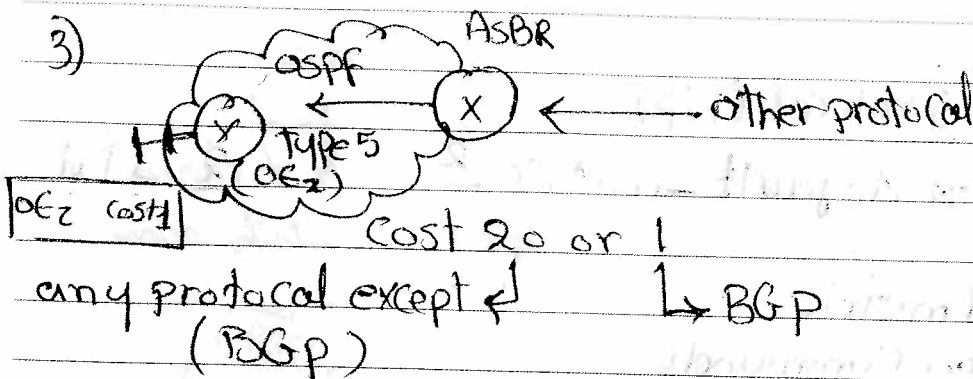 3)
ASBR
ospf
X
other protocal
X
type 5
(OE2)
OE2 cost1
cost 20 or 1
any protocal except
BGP
(BGP)